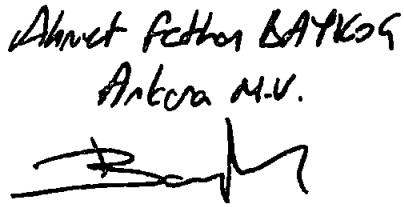 Ahmet Fethan BAYKOÇ
Ankara M.V.